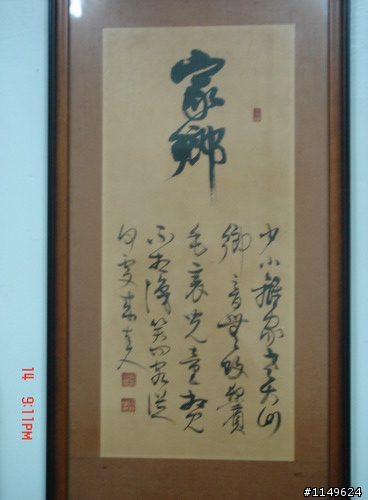 家鄉
少小離家老大回
鄉音無改鬢
毛衰兒童相見
不相識笑問客從
何處來
14 9:11PM
#1149624